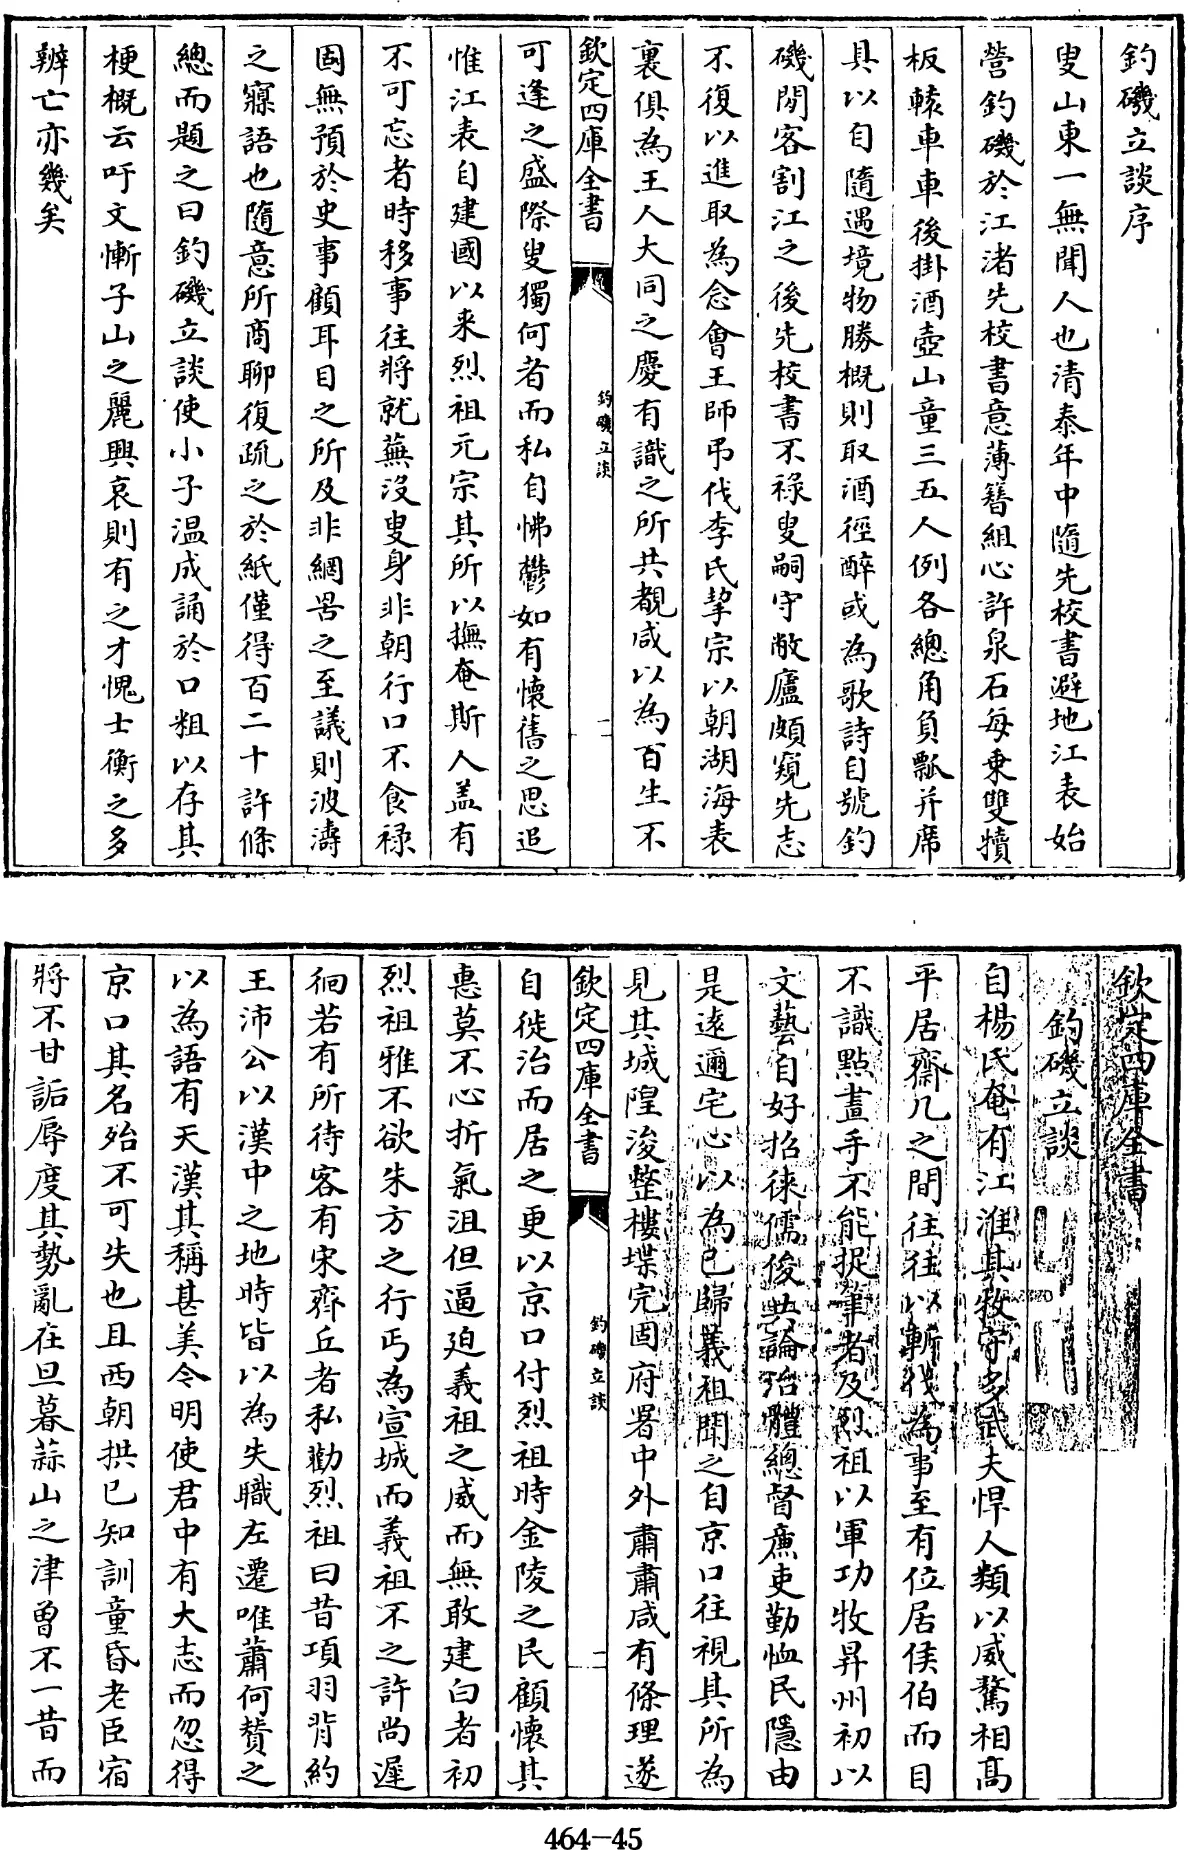 釣磯立談序
叟山東一無聞人也清泰年中隨先校書避地江表始
營釣磯於江渚先校書意薄簪組心許泉石每乗雙犢
板轅車車後掛酒壺山童三五人例各總角負瓢并席
具以自隨遇境物勝概則取酒徑醉或為歌詩自號釣
磯閒客割江之後先校書不禄叟嗣守敝廬頗窺先志
不復以進取為念會王師弔伐李氏挈宗以朝湖海表
裏俱為王人大同之慶有識之所共覩咸以為百生不
欽定四庫全書
釣磯立談
一
可逢之盛際叟獨何者而私自怫鬱如有懷舊之思追
惟江表自建國以来烈祖元宗其所以撫奄斯人盖有
不可忘者時移事往將就蕪沒叟身非朝行口不食禄
固無預於史事顧耳目之所及非網罟之至議則波濤
之寱語也隨意所商聊復疏之於紙僅得百二十許條
總而題之曰釣磯立談使小子温成誦於口粗以存其
梗概云吁文慚子山之麗興哀則有之才愧士衡之多
辨亡亦幾矣
欽定四庫全書
釣磯立談
自楊氏奄有江淮其牧守多武夫悍人類以威驁相髙
平居齋几之間往往以斬伐為事至有位居侯伯而目
不識點畫手不能捉筆者及烈祖以軍功牧昇州初以
文藝自好招徠儒俊共論治體總督亷吏勤恤民隱由
是遠邇宅心以為己歸義祖聞之自京口往視其所為
見其城隍浚整樓堞完固府署中外肅肅咸有條理遂
欽定四庫全書
釣磯立談
二
自徙治而居之更以京口付烈祖時金陵之民顧懷其
惠莫不心折氣沮但逼廹義祖之威而無敢建白者初
烈祖雅不欲朱方之行丐為宣城而義祖不之許尚遲
徊若有所待客有宋齊丘者私勸烈祖曰昔項羽背約
王沛公以漢中之地時皆以為失職左遷唯蕭何賛之
以為語有天漢其稱甚美今明使君中有大志而忽得
京口其名殆不可失也且西朝拱已知訓童昏老臣宿
將不甘詬辱度其勢亂在旦暮蒜山之津曽不一昔而
464-45